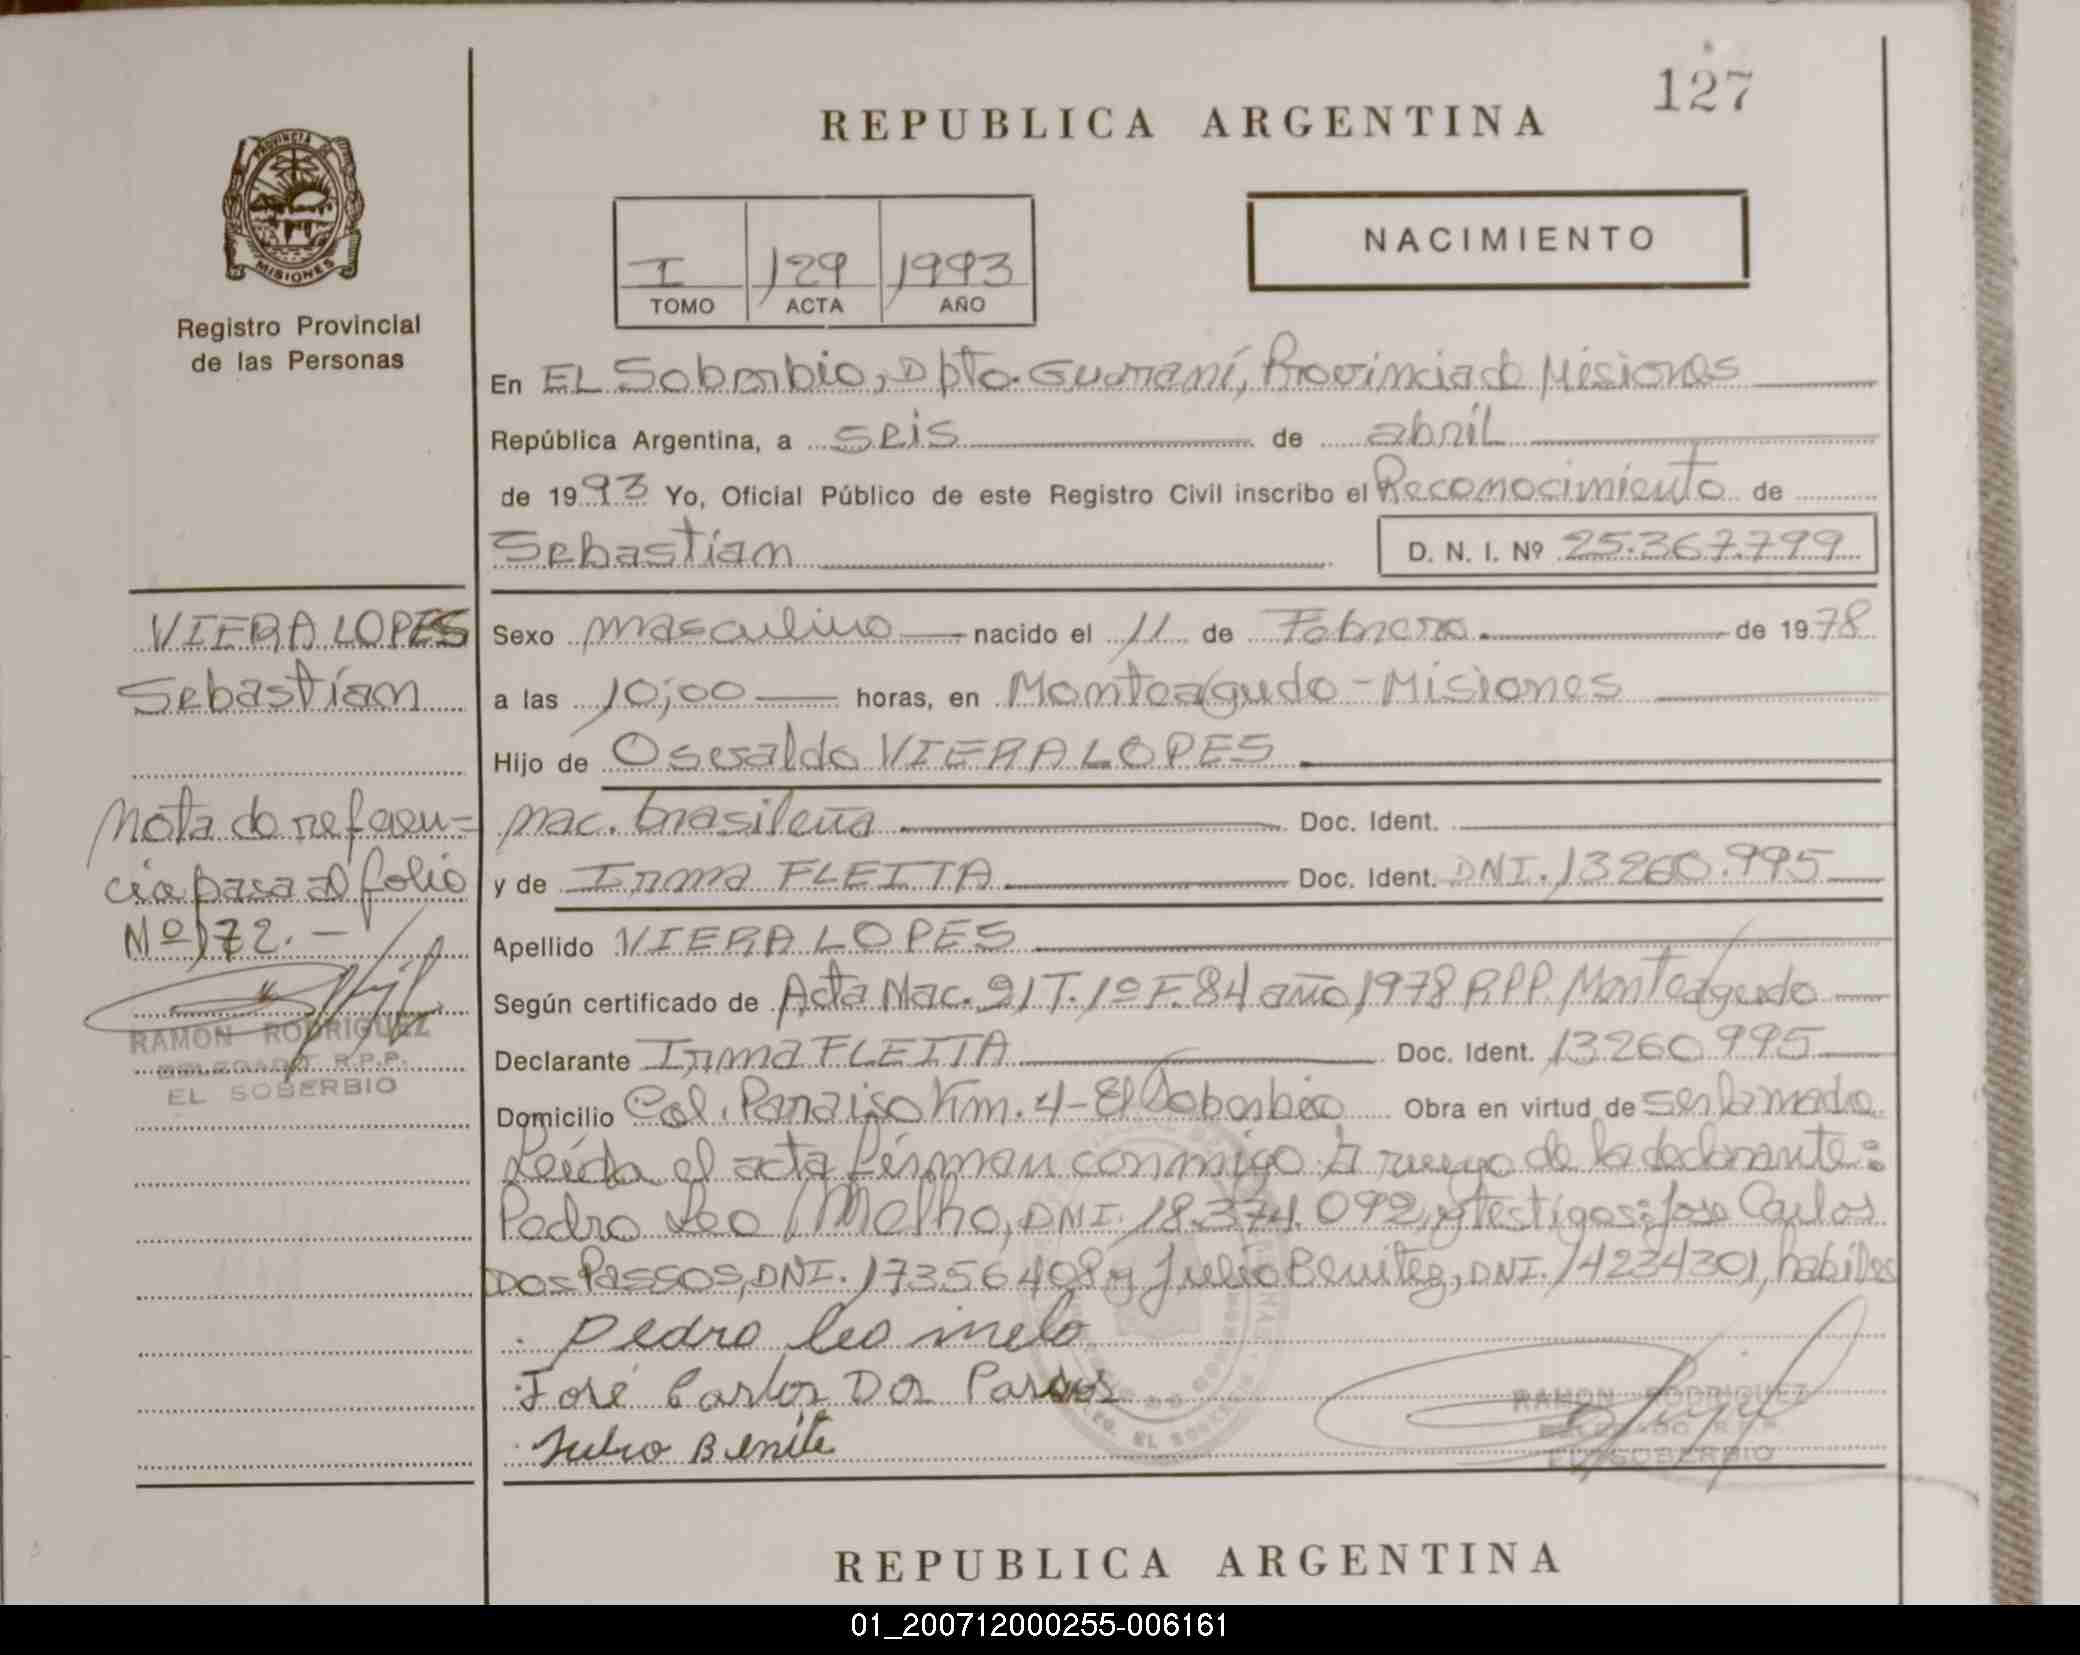 127
REPUBLICA ARGENTINA
PROVINCIA DE
MISIONES
Registro Provincial
de las Personas
I 129 1993
TOMO ACTA AÑO
NACIMIENTO
En EL Soberbio, Dpto. Guaraní, Provincia de Misiones
República Argentina, a seis de abril
de 1993 Yo, Oficial Público de este Registro Civil inscribo el Reconocimiento de
Sebastian
D. N. I. Nº 25.367.799
VIERA LOPES
Sebastian
Nota de referen=
cia pasa al folio
Nº 172.-
RAMON RODRIGUEZ
DELEGADO R.P.P.
EL SOBERBIO
Sexo masculino nacido el 11 de Febrero de 1978
a las 10;00 horas, en Monteagudo - Misiones
Hijo de Osvaldo VIERA LOPES
nac. brasileña Doc. Ident.
y de Irma FLEITA Doc. Ident. DNI. 13260.995
Apellido VIERA LOPES
Según certificado de Acta Nac. 91 T. 1º F. 84 año 1978 R.P.P. Monteagudo
Declarante Irma FLEITA Doc. Ident. 13260995
Domicilio Col. Paraiso Km. 4 - El Soberbio Obra en virtud de ser la madre
Leída el acta firman conmigo a ruego de la declarante:
Pedro Leo Melho, DNI. 18.374.092, y testigos: Jose Carlos
Dos Passos, DNI. 17356408 y Julio Benitez, DNI. 14234301, habiles
Pedro leo melo
José Carlos Dos Passos
Julio Benite
RAMON RODRIGUEZ
DELEGADO R.P.P.
EL SOBERBIO
REPUBLICA ARGENTINA
01_200712000255-006161